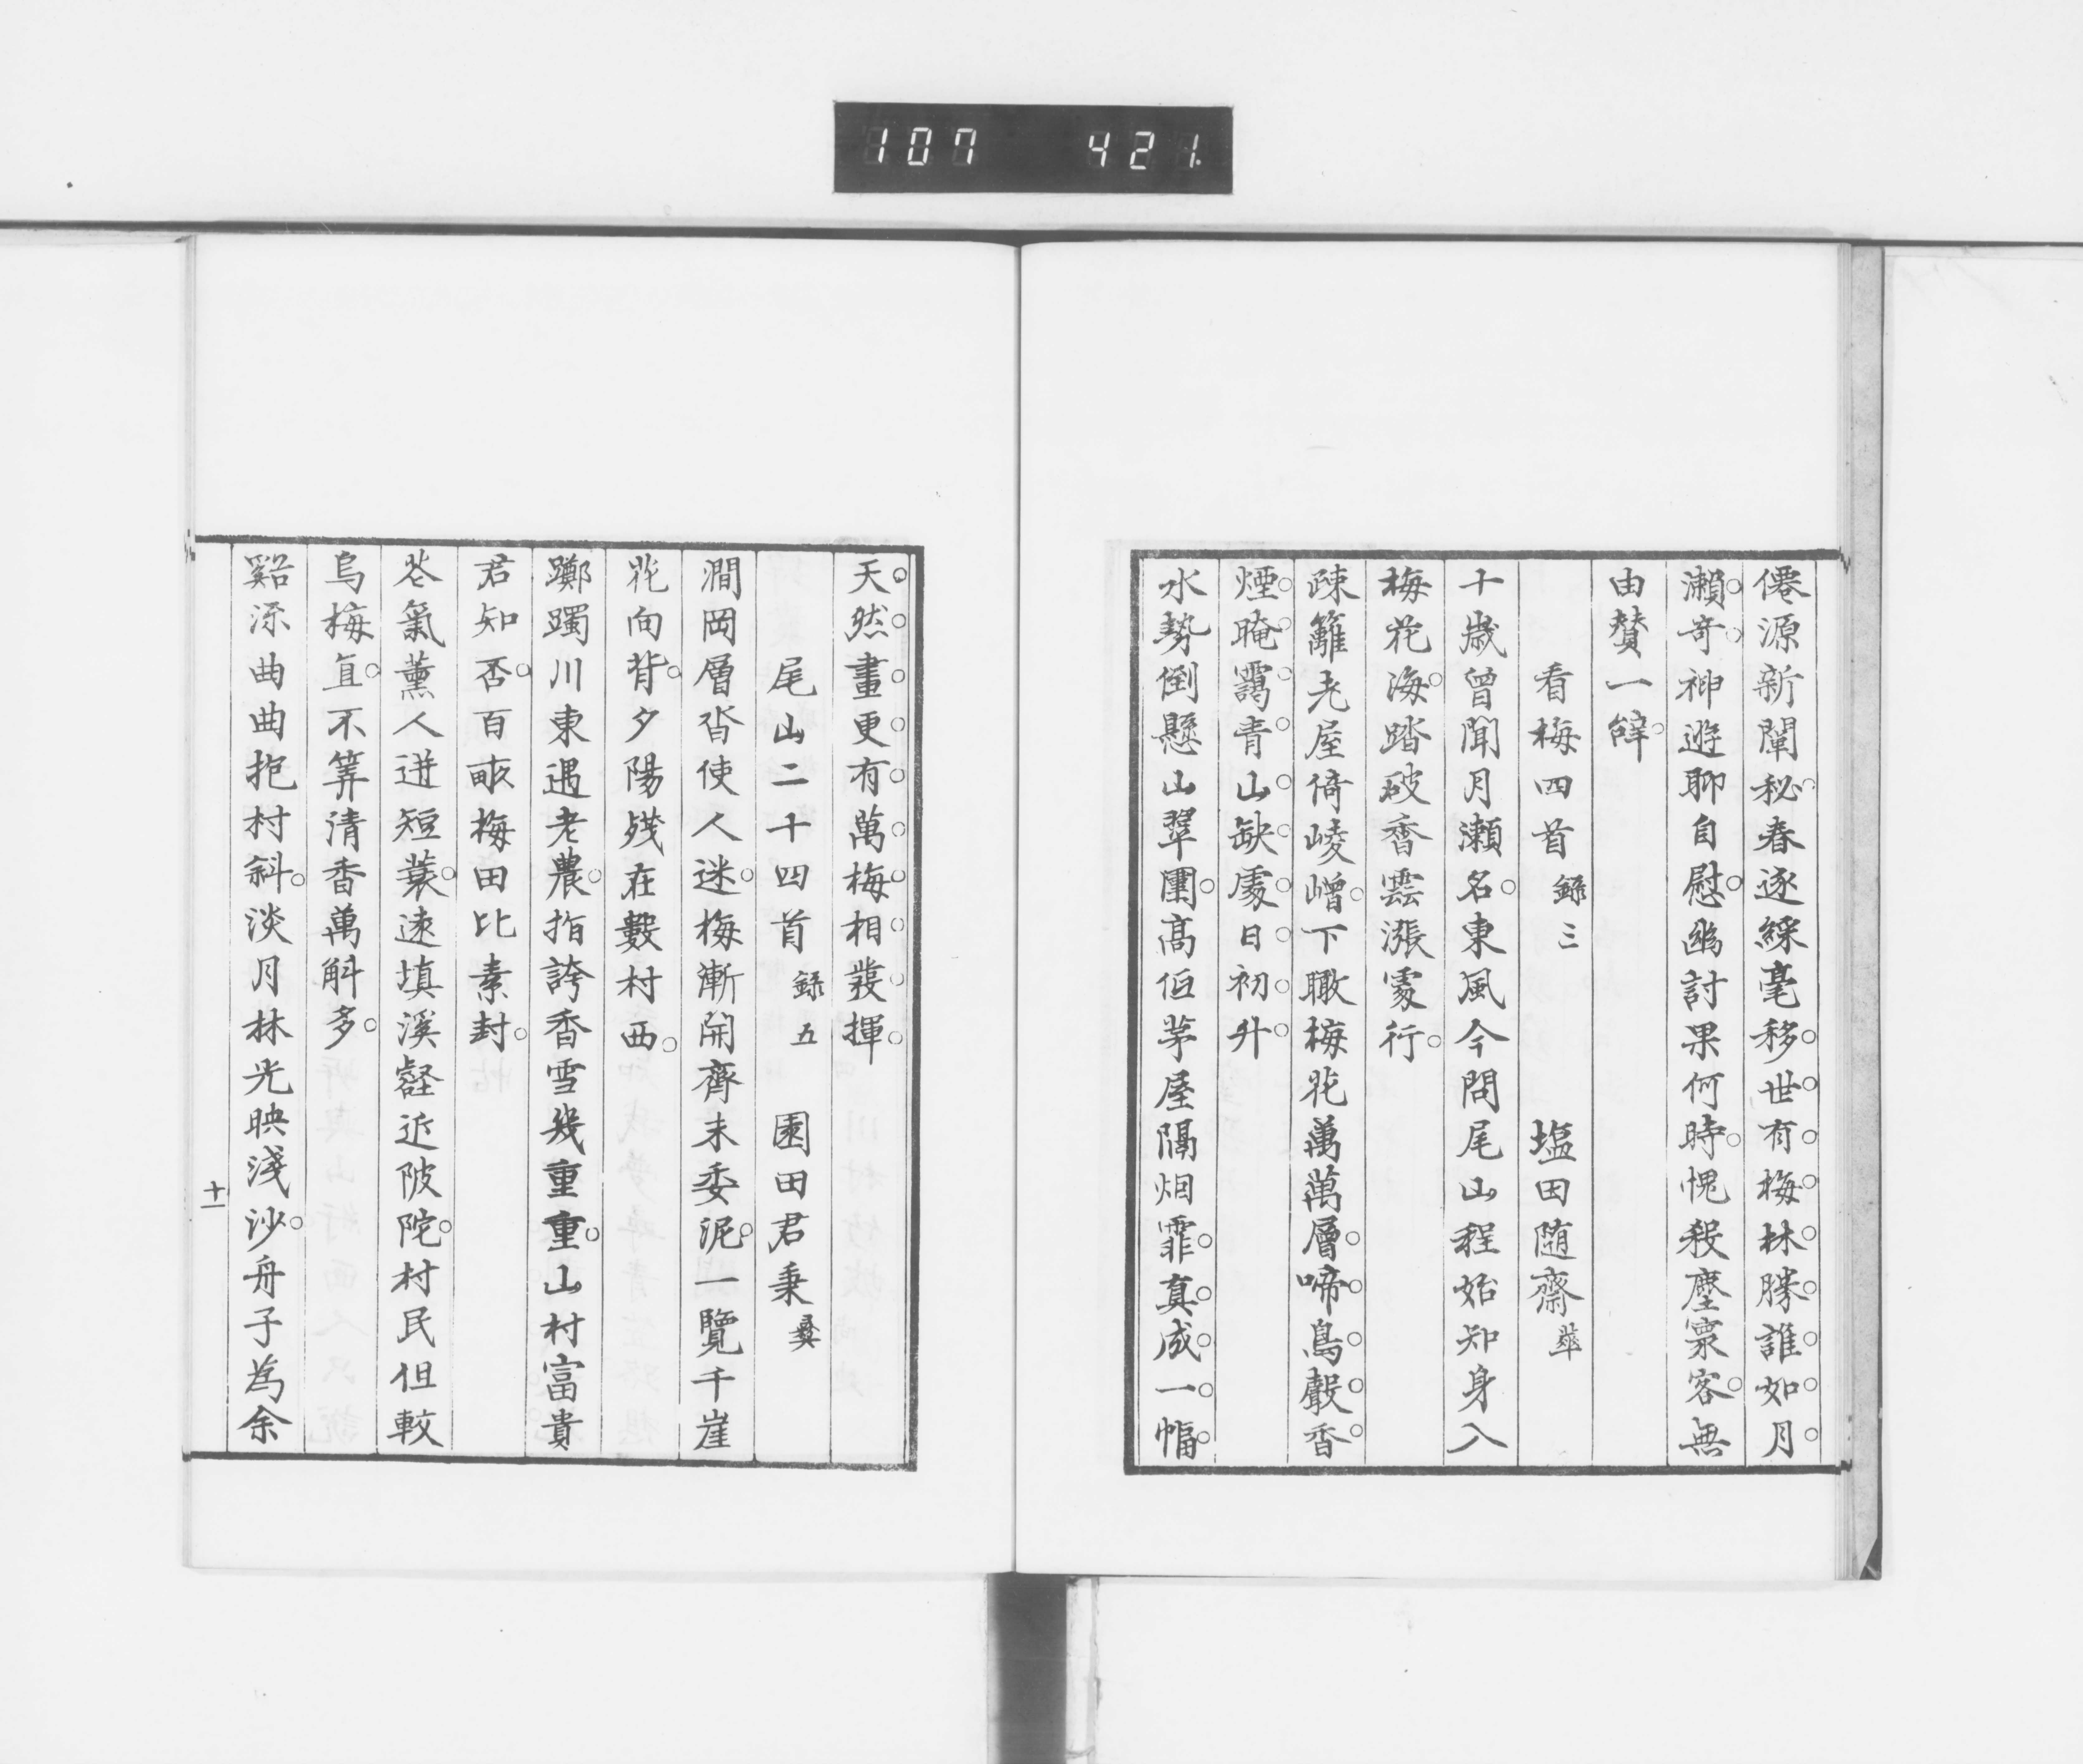 107 421
僊源新闡秘春逐綵毫移世有梅林勝誰如月
瀨奇神遊聊自慰幽討果何時愧殺塵寰客無
由賛一辭
看梅四首 錄三 塩田随齋
十歲曾聞月瀨名東風今問尾山程始知身入
梅花海踏破香雲漲處行
疎籬老屋倚崚嶒下瞰梅花萬萬層啼鳥聲香
煙晻靄青山缺處日初升
水勢倒懸山翠圍高低茅屋隔烟霏真成一幅
天然畫更有萬梅相發揮
尾山二十四首 錄五 園田君秉 彜
澗岡層沓使人迷梅漸開齊未委泥一覽千崖
花向背夕陽殘在數村西
躑躅川東遇老農指誇香雪幾重重山村富貴
君知否百畝梅田比素封
花氣薰人迸短蓑遠填溪壑近陂陀村民但較
烏梅直不筭清香萬斛多
谿流曲曲抱村斜淡月林光映淺沙舟子為余
十一